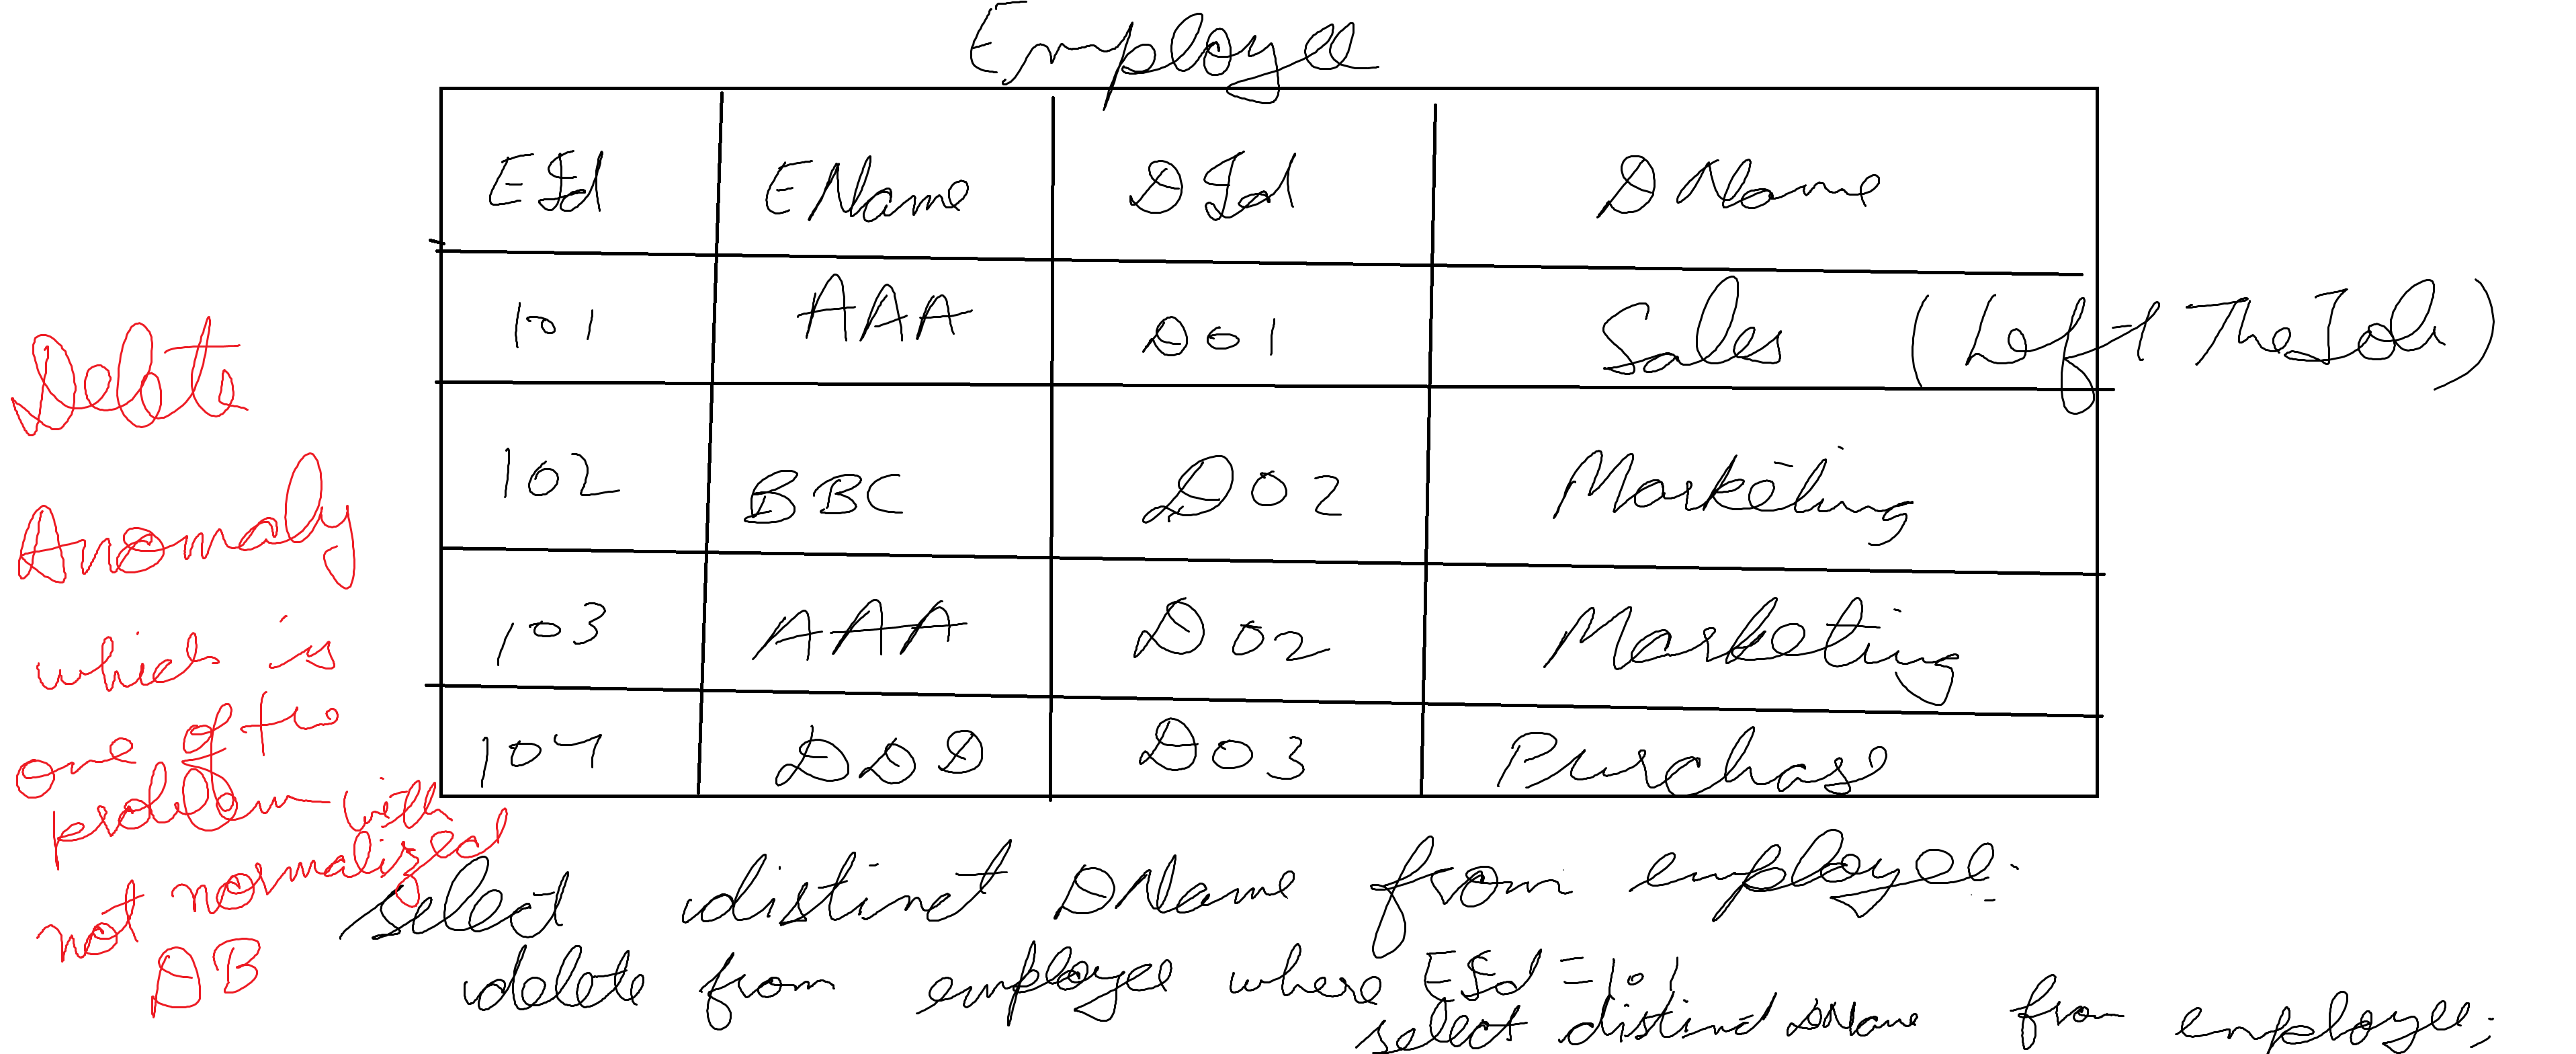 Employee
EId EName DId DName
101 AAA D01 Sales (Left The Job)
102 BBC D02 Marketing
103 AAA D02 Marketing
104 DDD D03 Purchase
Delete
Anomaly
which is
one of the
problem with
not normalized
DB
select distinct DName from employee;
delete from employee where EId = 101
select distinct DName from employee;